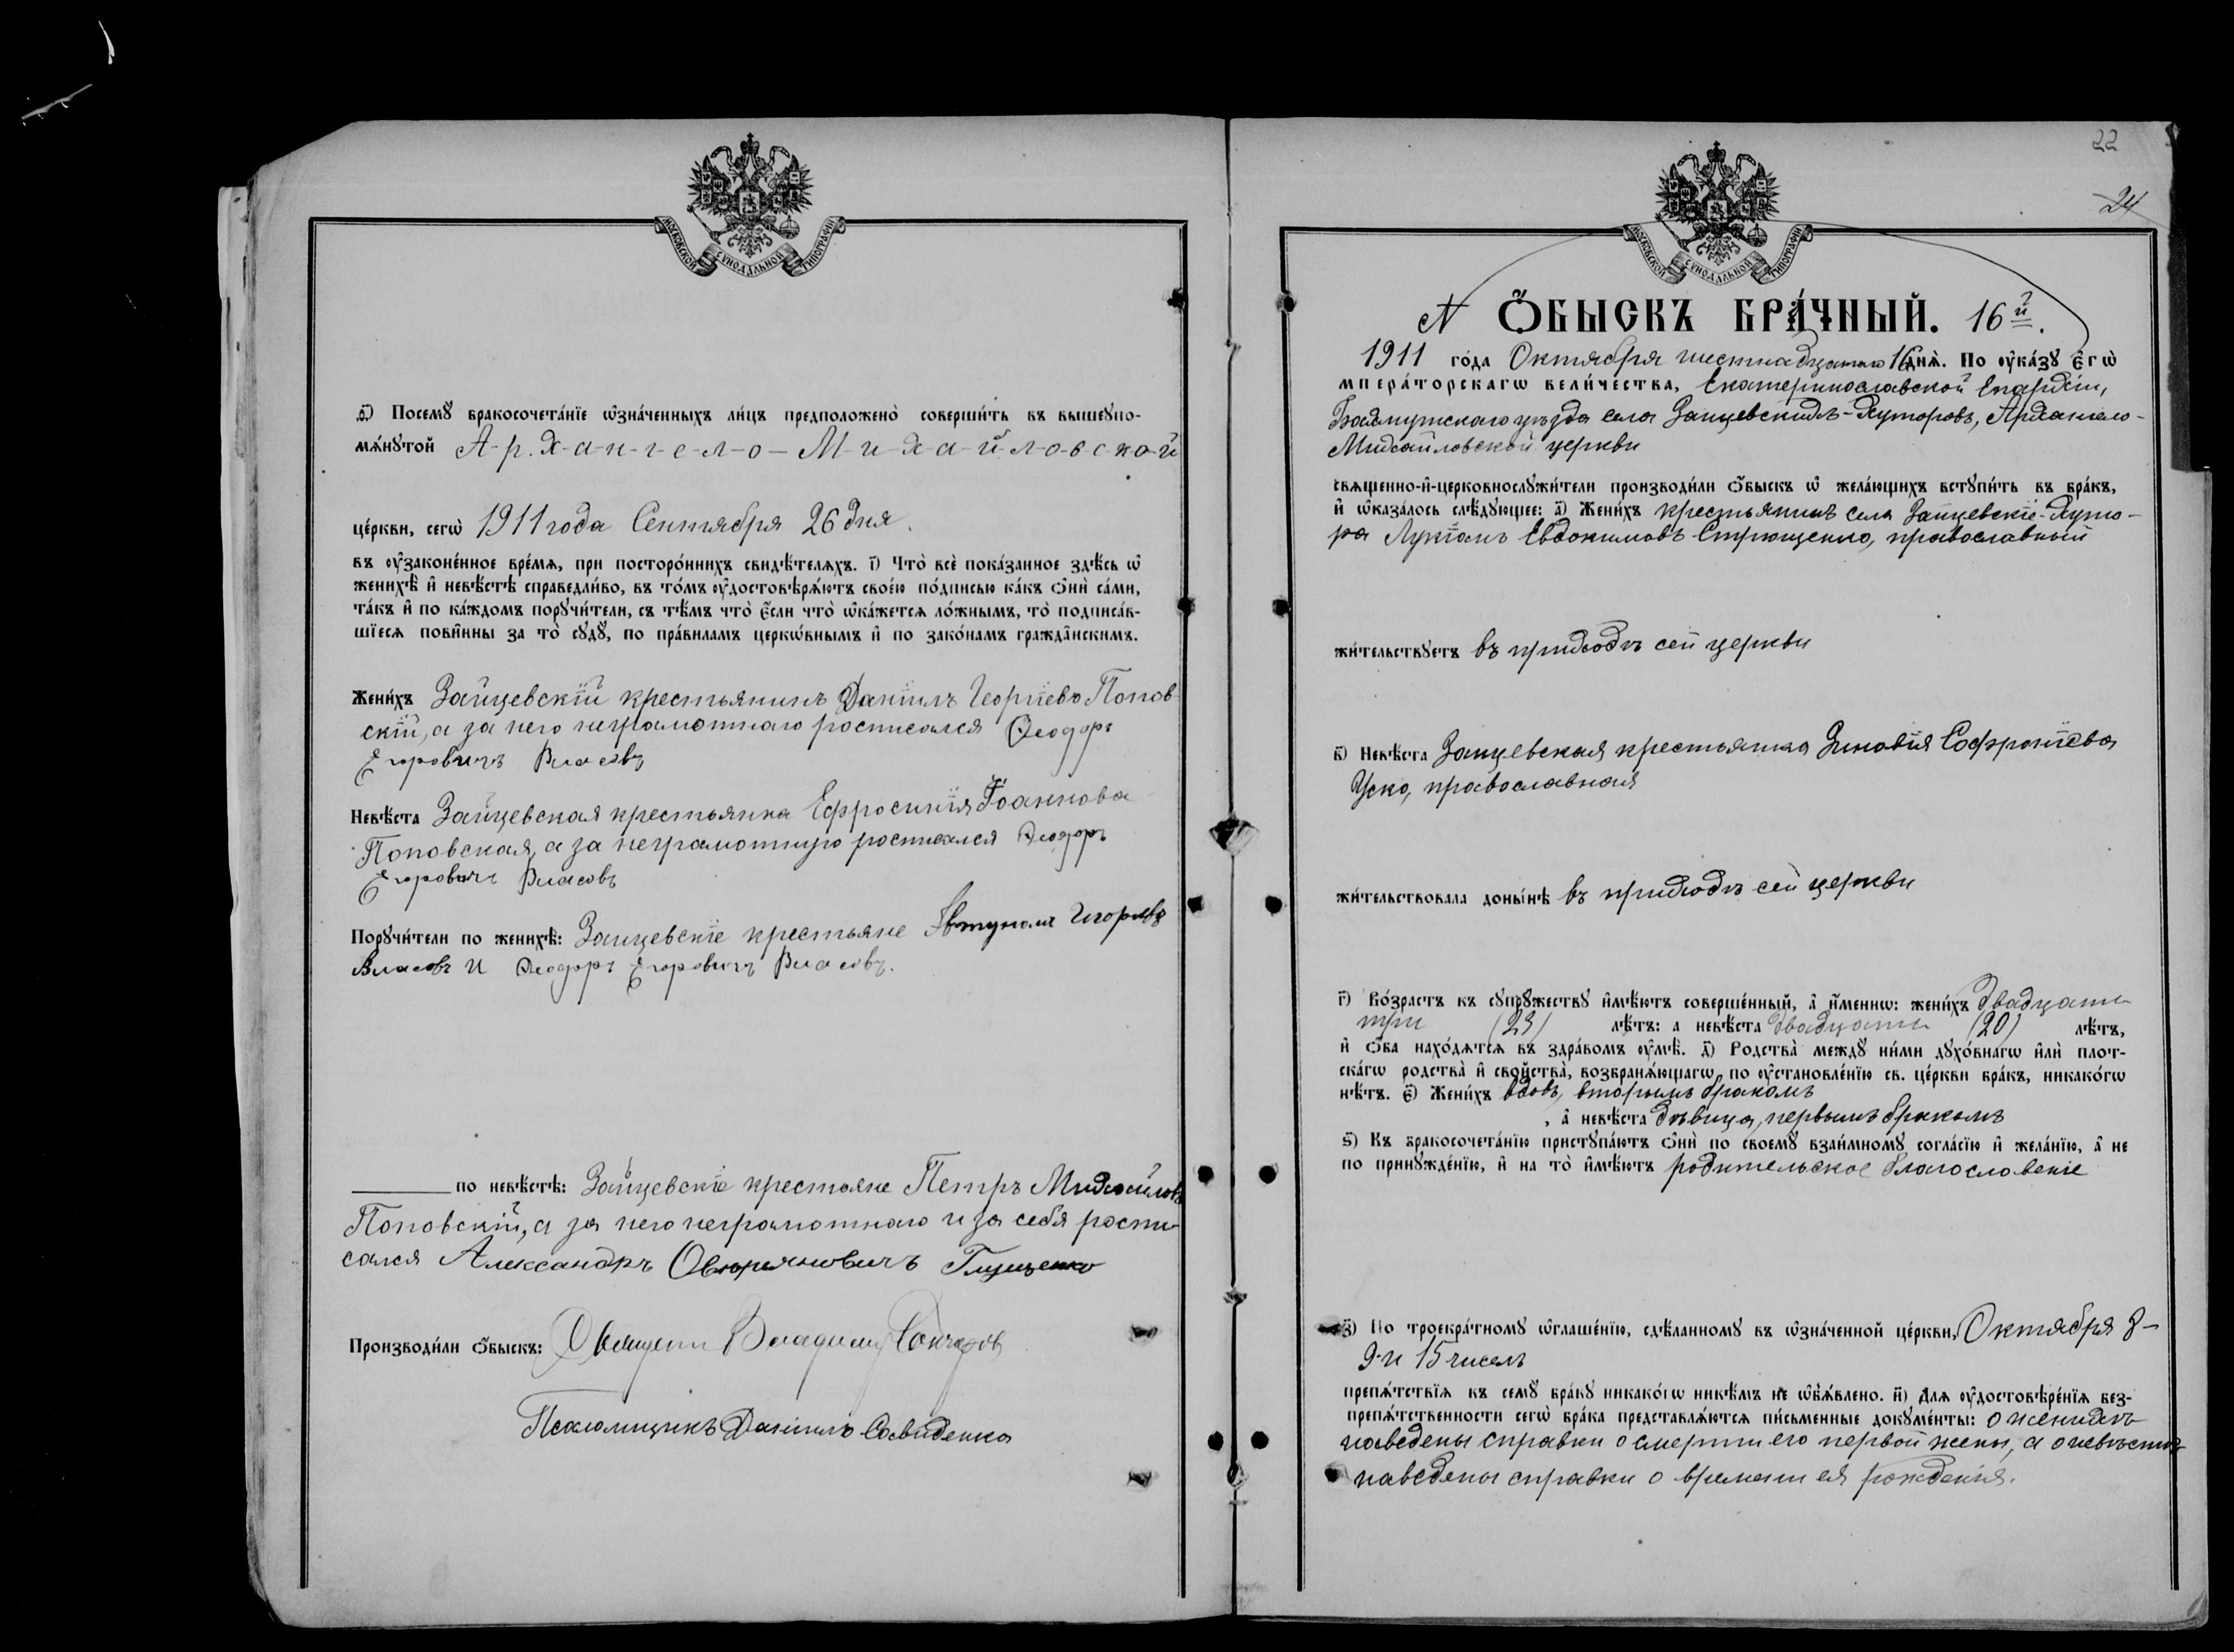 МОСКОВСКОЙ СѴНОДАЛЬНОЙ ТИПОГРАФІИ
Посемꙋ̀ бракосочета́нїе ѡ҆зна́ченныхъ ли́цъ предположено̀ соверши́ть въ вышеꙋпо-
мѧ́нꙋтой А-р-х-а-н-г-е-л-о-М-и-х-а-й-л-о-в-с-к-о-й
це́ркви, сегѡ̀ 1911 года Сентября 26 дня.
въ ᲂу҆законе́нное вре́мѧ, при посторо́ннихъ свидѣ́телѧхъ. і҃) Что̀ всѐ пока́занное здѣ́сь ѡ҆
женихѣ̀ и҆ невѣ́стѣ справедли́во, въ то́мъ ᲂу҆достовѣрѧ́ютъ свое́ю по́дписью ка́къ ѻ҆нѝ са́ми,
та́къ и҆ по ка́ждомъ порꙋчи́тели, съ тѣ́мъ что̀ є҆́сли что̀ ѡ҆ка́жется ло́жнымъ, то̀ подписа́в-
шїеся пови́нны за то̀ сꙋдꙋ̀, по пра́виламъ церко́внымъ и҆ по зако́намъ гражда́нскимъ.
Жени́хъ Зайцевскій крестьянинъ Даніилъ Георгіевъ Попов-
скій, а за него неграмотнаго росписался Ѳеодоръ
Егоровичъ Власовъ
Невѣ́ста Зайцевская крестьянка Ефросинія Іоаннова
Поповская, а за неграмотную росписался Ѳеодоръ
Егоровичъ Власовъ
Порꙋчи́тели по женихѣ̀: Зайцевскіе крестьяне
Власовъ и Ѳеодоръ Егоровичъ Власовъ.
по невѣ́стѣ: Зайцевскіе крестьяне Петръ Михайловъ
Поповскій, а за него неграмотнаго и за себя роспи-
сался Александръ Глущенко
Производи́ли ѻ҆́быскъ: Священ Владимір Гончаров
Псаломщикъ Даніилъ Савиденко
22
24
МОСКОВСКОЙ СѴНОДАЛЬНОЙ ТИПОГРАФІИ
N Ѻ҆́БЫСКЪ БРА́ЧНЫЙ. 16й.
1911 го́да Октября шестнадцатаго 16 днѧ̀. По ᲂу҆ка́зꙋ є҆гѡ̀
мпера́торскагѡ вели́чества, Екатеринославской Епархіи,
Бахмутскаго уѣзда села Зайцевскихъ-Хуторовъ, Архангело-
Михайловской церкви
свѧщенно-и҆-церковнослꙋжи́тели производи́ли ѻ҆́быскъ ѡ҆ жела́ющихъ встꙋпи́ть въ бра́къ,
и҆ ѡ҆каза́лось слѣ́дꙋющее: а҃) Жени́хъ крестьянинъ села Зайцевскіе-Хуто-
ра Лукіанъ Евдокимовъ Стрющенко, православный
жи́тельствꙋетъ въ приходѣ сей церкви
в҃) Невѣ́ста Зайцевская крестьянка Зиновія Софроніева
Уско, православная
жи́тельствовала доны́нѣ въ приходѣ сей церкви
г҃) Во́зрастъ къ сꙋпрꙋ́жествꙋ и҆мѣ́ютъ соверше́нный, а҆ и҆́менно: жени́хъ двадцати
три (23) лѣ́тъ: а невѣ́ста двадцати (20) лѣ́тъ,
и҆ ѻ҆́ба нахо́дѧтсѧ въ здра́вомъ ᲂу҆мѣ̀. д҃) Родства̀ междꙋ̀ ни́ми дꙋхо́внагѡ и҆лѝ плот-
ска́гѡ родства̀ и҆ свойства̀, возбранѧ́ющагѡ по ᲂу҆становле́нїю св. це́ркви бра́къ, никако́гѡ
нѣ́тъ. є҃) Жени́хъ вдовъ, вторымъ бракомъ
, а҆ невѣ́ста дѣвица, первымъ бракомъ
ѕ҃) Къ бракосочета́нїю пристꙋпа́ютъ ѻ҆нѝ по своемꙋ̀ взаи́мномꙋ согла́сїю и҆ жела́нїю, а҆ не
по принꙋжде́нїю, и҆ на то̀ и҆мѣ́ютъ родительское благословеніе
з҃) По троекра́тномꙋ ѡ҆глаше́нїю, сдѣ́ланномꙋ въ ѡ҆зна́ченной це́ркви, Октября 8-
9-и 15 чиселъ
препѧ́тствїѧ къ семꙋ̀ бра́кꙋ никако́гѡ никѣ́мъ не ѡ҆б̾ѧ́влено. и҃) Для ᲂу҆достовѣре́нїѧ без-
препѧ́тственности сегѡ̀ бра́ка представлѧ́ются пи́сьменные докꙋме́нты: о женихѣ
наведены справки о смерти его первой жены, а о невѣстѣ
наведены справки о времени ея рожденія.